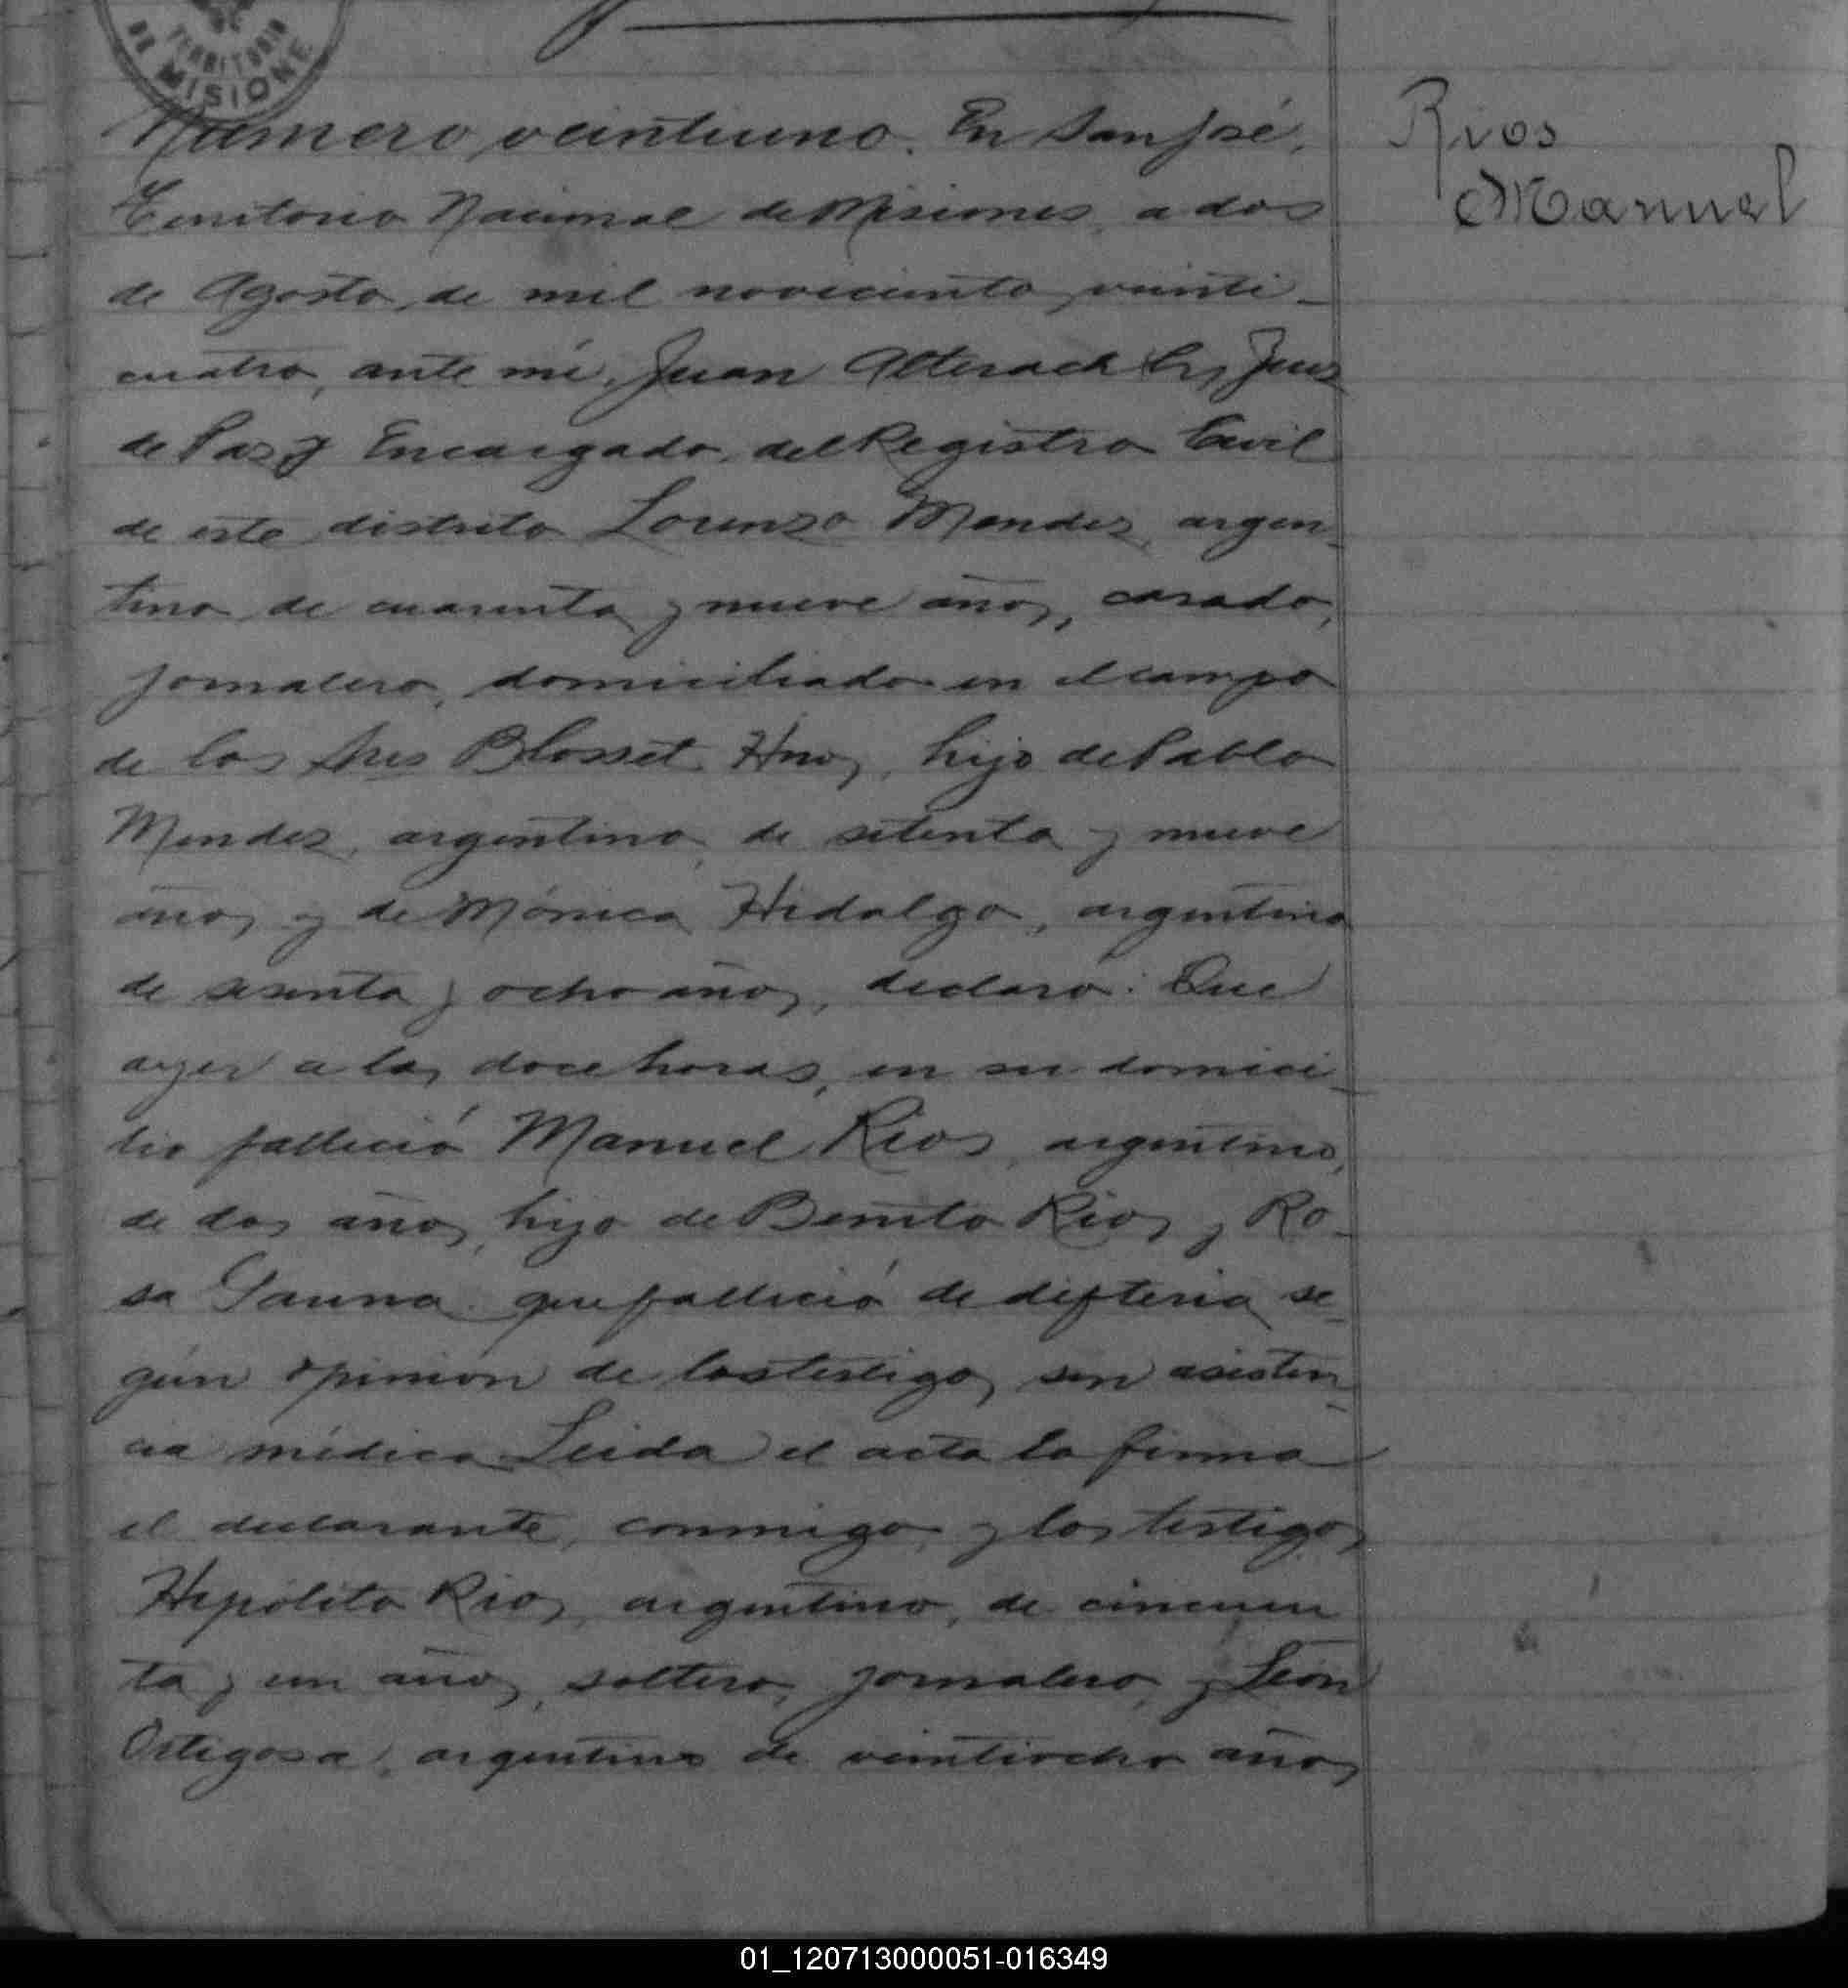 TERRITORIO
DE MISIONE
Numero veintiuno. En San José,
Territorio Nacional de Misiones, a dos
de Agosto, de mil novecientos veinti-
cuatro, ante mi, Juan Alterach Juez
de Paz y Encargado del Registro Civil
de este distrito Lorenzo Mendez, argen-
tino de cuarenta y nueve años, casado,
jornalero, domiciliado en el campo
de los Sres Blosset Hnos, hijo de Pablo
Mendez, argentino, de setenta y nueve
años y de Mónica Hidalgo, argentina
de sesenta y ocho años, declaró: Que
ayer a las doce horas, en su domici-
lio falleció Manuel Rios, argentino,
de dos años, hijo de Benito Rios y Ro-
sa Gauna que falleció de difteria se-
gún opinión de los testigos sin asisten-
cia médica Leida el acta la firma
el declarante, conmigo y los testigos
Hipólito Rios, argentino, de cincuen
ta y un años, soltero, jornalero, y León
Ortigosa, argentino de veintiocho años
Rios
Manuel
01_120713000051-016349